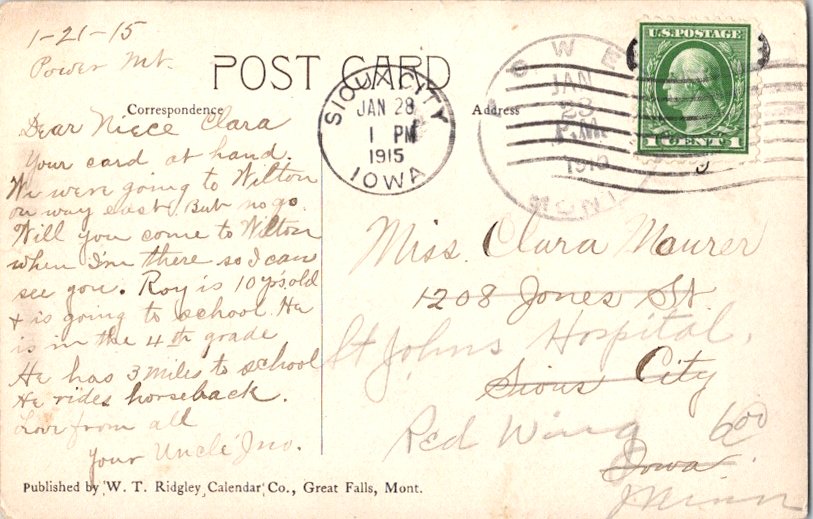 1-21-15
Power Mt.
POST CARD
Correspondence
Address
Dear Niece Clara
Your card at hand.
We were going to Wilton
on way east. But no go.
Will you come to Wilton
when I'm there so I can
see you. Roy is 10 yrs old
& is going to school. He
is in the 4th grade
He has 3 miles to school
He rides horseback.
Love from all
Your Uncle Jno.
SIOUX CITY
JAN 28
1 PM
1915
IOWA
JAN
23
P.M.
1915
MONT
U.S. POSTAGE
1 CENT 1
Miss. Clara Maurer
1208 Jones St.
St Johns Hospital,
Sioux City
Red Wing
Iowa
Minn
Published by W. T. Ridgley Calendar Co., Great Falls, Mont.